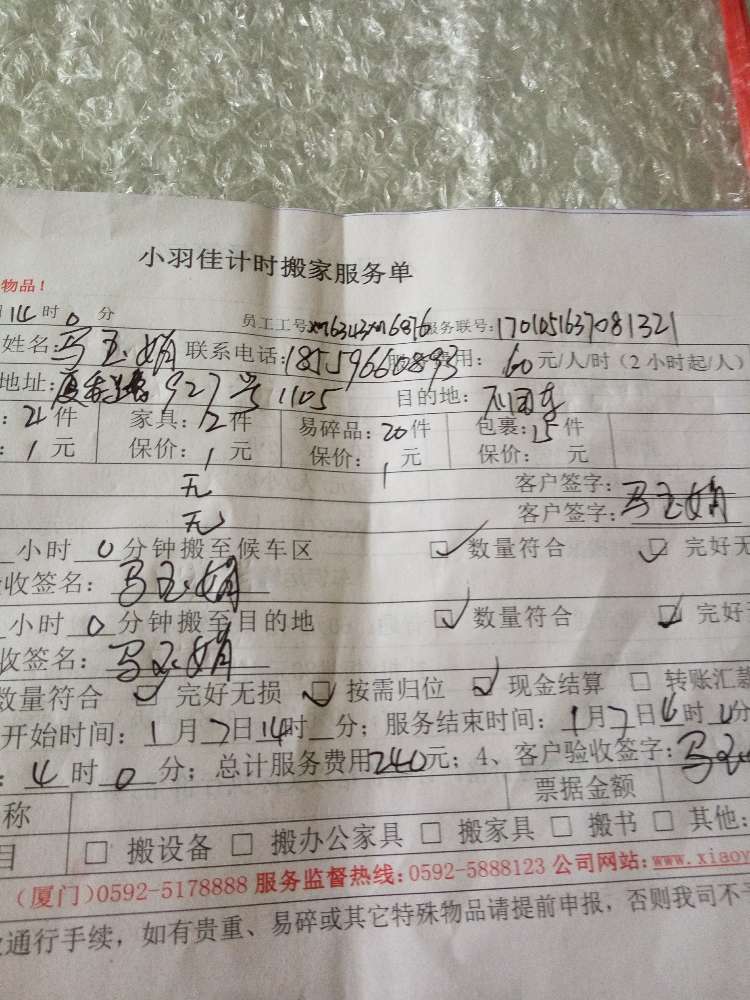 小羽佳计时搬家服务单
物品!
14时0分 员工工号:xm6343xm6876服务联号:1701051637081321
姓名:马玉娟 联系电话:18559660893 费用:60元/人/时(2小时起/人)
地址: 927号1105 目的地:
:21件 家具:12件 易碎品:20件 包裹:15件
:1元 保价:1元 保价:1元 保价: 元
无 客户签字:
无 客户签字:马玉娟
小时0分钟搬至候车区 数量符合 完好无
收签名:马玉娟
小时0分钟搬至目的地 数量符合 完好
收签名:马玉娟
数量符合 完好无损 按需归位 现金结算 转账汇款
开始时间:1月7日14时 分;服务结束时间:1月7日 时 分
:4时0分;总计服务费用240元;4、客户验收签字:马
称 票据金额
目 搬设备 搬办公家具 搬家具 搬书 其他:
(厦门)0592-5178888 服务监督热线:0592-5888123 公司网站:www.xiaoy
通行手续,如有贵重、易碎或其它特殊物品请提前申报,否则我司不